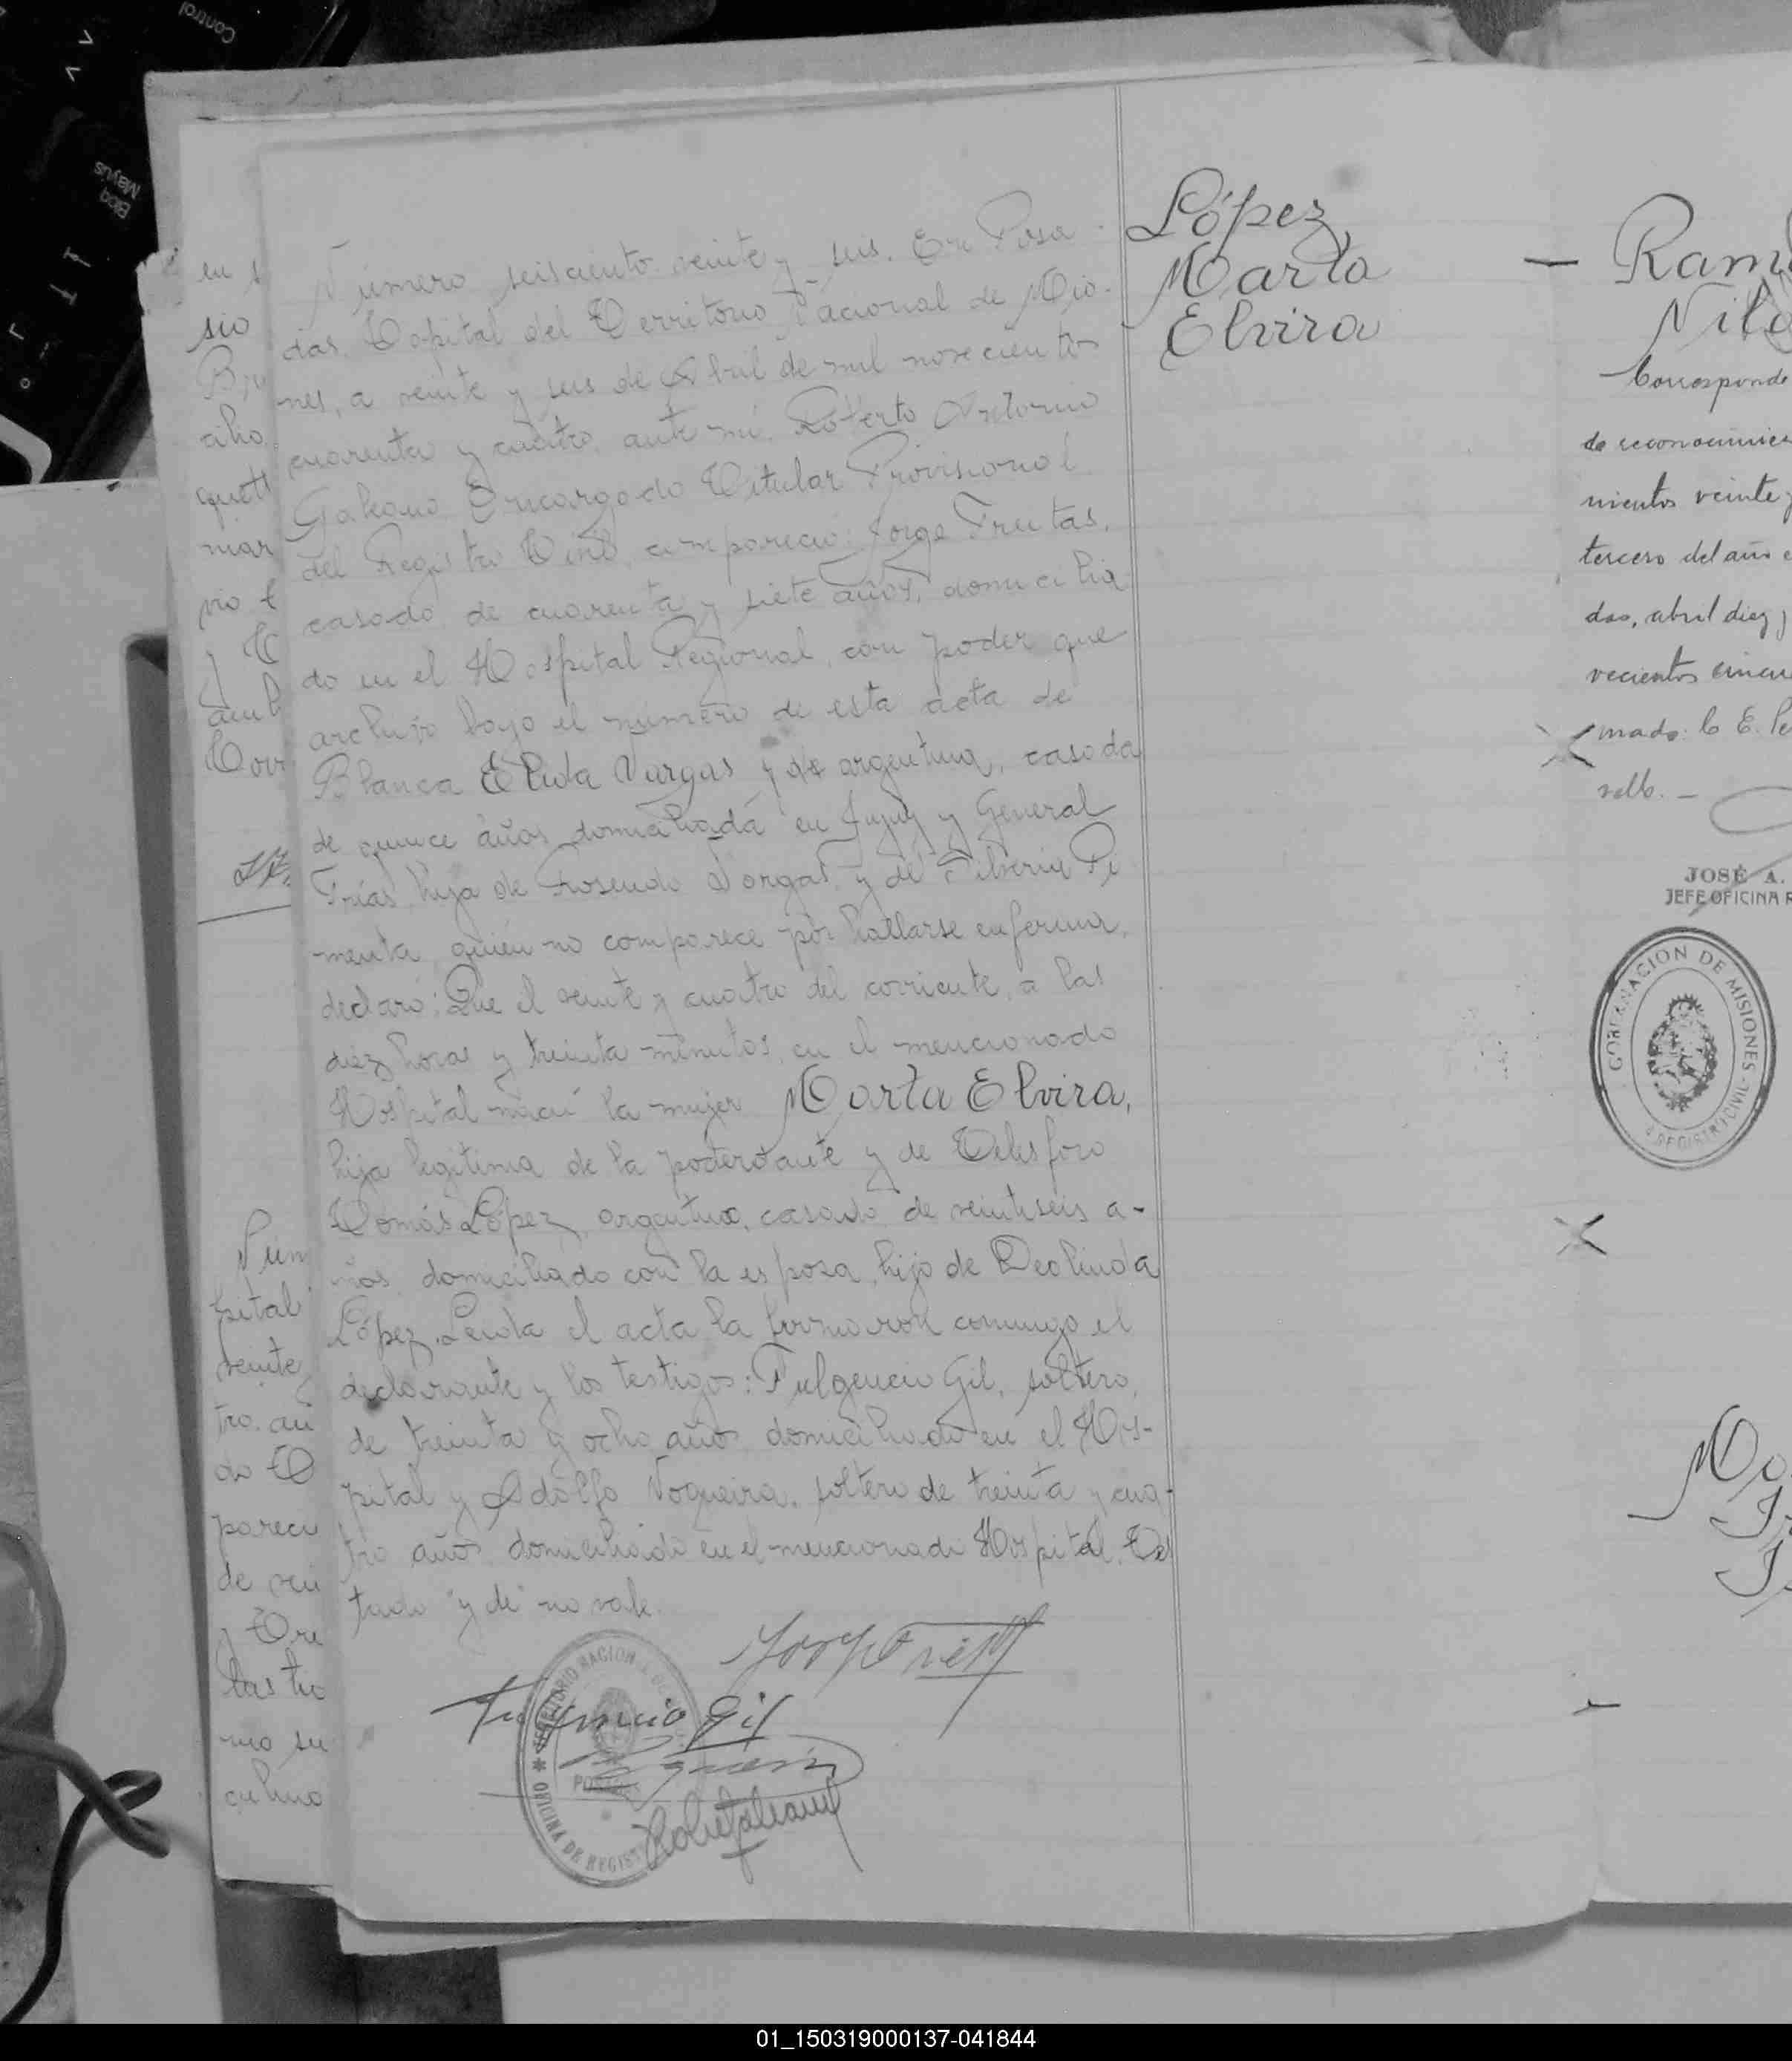 Control
Bloq
Mayús
López,
Marta
Elvira
Número seiscientos veinte y seis. En Posa-
das, Capital del Territorio Nacional de Misio-
nes, a veinte y seis de Abril de mil novecientos
cuarenta y cuatro, ante mí, Roberto Antonio
Galeano Encargado Titular Provisional
del Registro Civil, compareció: Jorge Freitas,
casado, de cuarenta y siete años, domicilia
do en el Hospital Regional, con poder que
archivo bajo el número de esta acta de
Blanca Elida Vargas y de argentina, casada
de quince años, domiciliada en Jujuy y General
Frías, hija de Rosendo Vargas y de Silveria Pi
menta, quién no comparece por hallarse enferma,
declaró: Que el veinte y cuatro del corriente, a las
diez horas y treinta minutos, en el mencionado
Hospital nació la mujer Marta Elvira,
hija legítima de la poderdante y de Telesforo
Tomás López, argentino, casado, de veintiseis a-
ños, domiciliado con la esposa, hijo de Deolinda
López. Leída el acta la firmaron conmigo el
declarante y los testigos: Fulgencio Gil, soltero,
de treinta y ocho años, domiciliado en el Hos-
pital y Adolfo Nogueira, soltero de treinta y cua-
tro años, domiciliado en el mencionado Hospital. Tes
tado "y de" no vale.
Fulgencio Gil
TERRITORIO NACIONAL DE
POSADAS
OFICINA DE REGISTRO
en s
sio
cilio
mar
pital
veinte
tro, an
do T
pareci
de vei
las tre
mo su
culino
— Ram
Nil
Corresponde
de reconocimien
mientos veinte y
tercero del año
das, abril diez y
vecientos cincu
mado: C. E. Pe
sello. —
JOSÉ A.
JEFE OFICINA R
GOBERNACION DE MISIONES
REGISTRO CIVIL
01_150319000137-041844